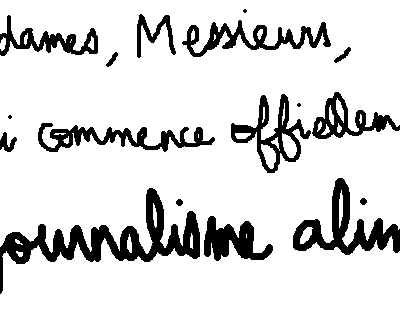 dames, Messieurs,
i commence offiellem
journalisme alim